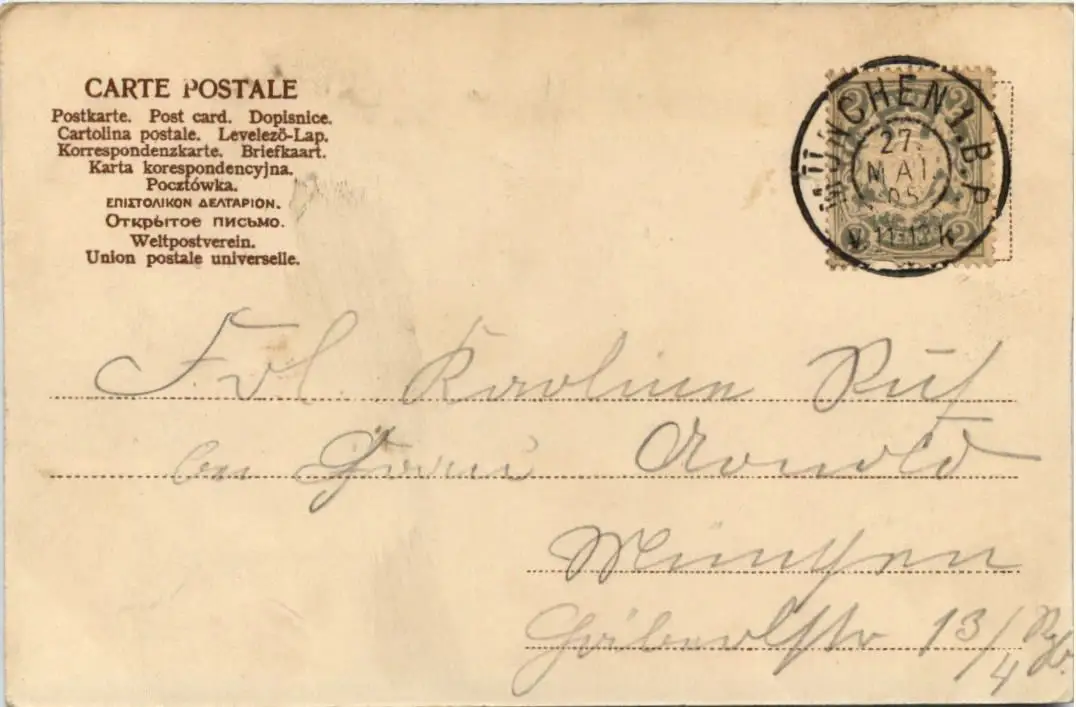 CARTE POSTALE
Postkarte. Post card. Dopisnice.
Cartolina postale. Levelező-Lap.
Korrespondenzkarte. Briefkaart.
Karta korespondencyjna.
Pocztówka.
ΕΠΙΣΤΟΛΙΚΟΝ ΔΕΛΤΑΡΙΟΝ.
Открытое письмо.
Weltpostverein.
Union postale universelle.
MÜNCHEN 1. B.P.
27.
MAI.
05
V. 11-12
2 2
2 2
Frl. Karoline Ruf
Arnold
München
13/4